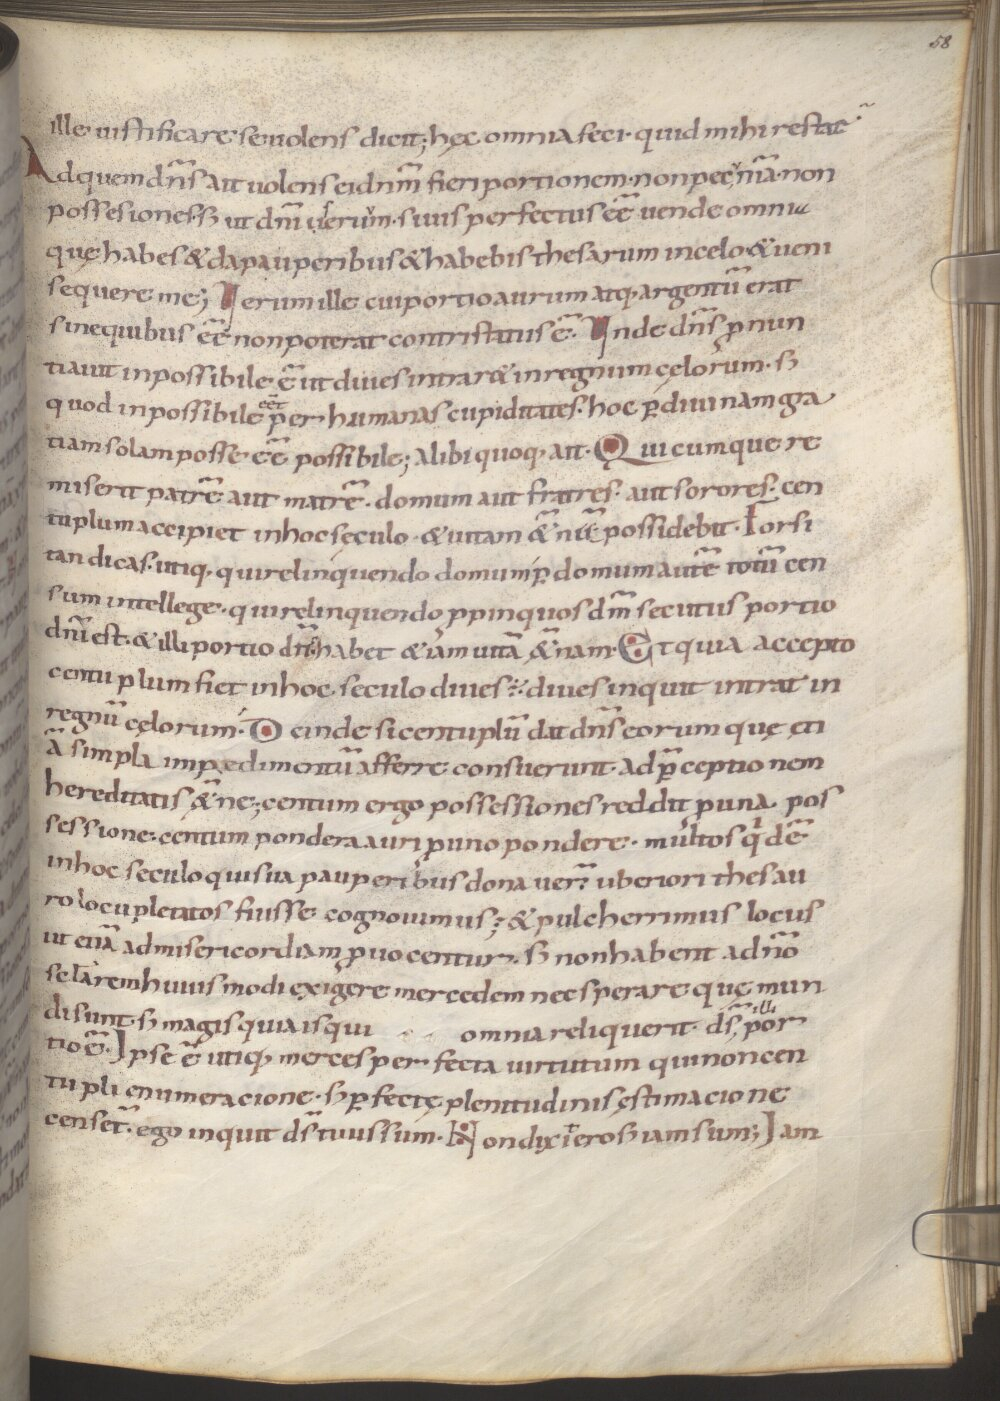 58
ille iustificare se uolens dicit; hęc omnia feci · quid mihi restat
Ad quem dn̄s ait uolens ei dnm̄ fieri portionem · non pecunia · non
possesiones ss; ut dnī uerum · si uis perfectus eē uende omnia
quę habes & da pauperibus & habebis thesarum in celo & ueni
sequere me; Verum ille cui portio aurum atq; argentū erat
sine quibus eē non poterat contristatus ē. Unde dn̄s pnun
tiauit inpossibile ē ut diues intrar& in regnum cęlorum · s;
quod inpossibile eet per humanas cupiditates · hoc p diuinam gra
tiam solam posse eē possibile; alibi quoq; ait · Quicumque re
miserit patrē aut matrē · domum aut fratres · aut sorores · cen
tuplum accipiet in hoc sęculo · & uitam &nā possidebit · Forsi
tan dicas · utiq; qui relinquendo domum p domum autē totū cen
sum intellege · qui relinquendo ppinquos dnm̄ secutus portio
dnī est · & illi portio dn̄s habet & iam uitā &nam · Et quia accepto
centuplum fiet in hoc seculo diues · diues inquit intrat in
regnū cęlorum · Deinde si centuplū dat dn̄s eorum quę eti
ā simpla impedimentū afferre consuerunt · ad pceptionem
hereditatis &ne; centum ergo possessiones reddit p una pos
sessione · centum pondera auri p uno pondere · multos qdē
in hoc seculo qui sua pauperibus dona uer̄ uberiori thesau
ro locupletatos fuisse cognouimus; & pulcherrimus locus
ut etiā ad misericordiam puocentur · s; non habent a dnō
se laturem huiusmodi exigere mercedem nec sperare quę mun
di sunt · s; magis quia is qui omnia reliquerit · ds̄ illi por
tio ē. Ipse ē utiq; merces perfecta uirtutum qui non cen
tupli enumeracione · s; pfectę plenitudinis ęstimacione
censet̄ · ego inquit ds̄ tuus sum · Non dixit ero s; iam sum; Iam